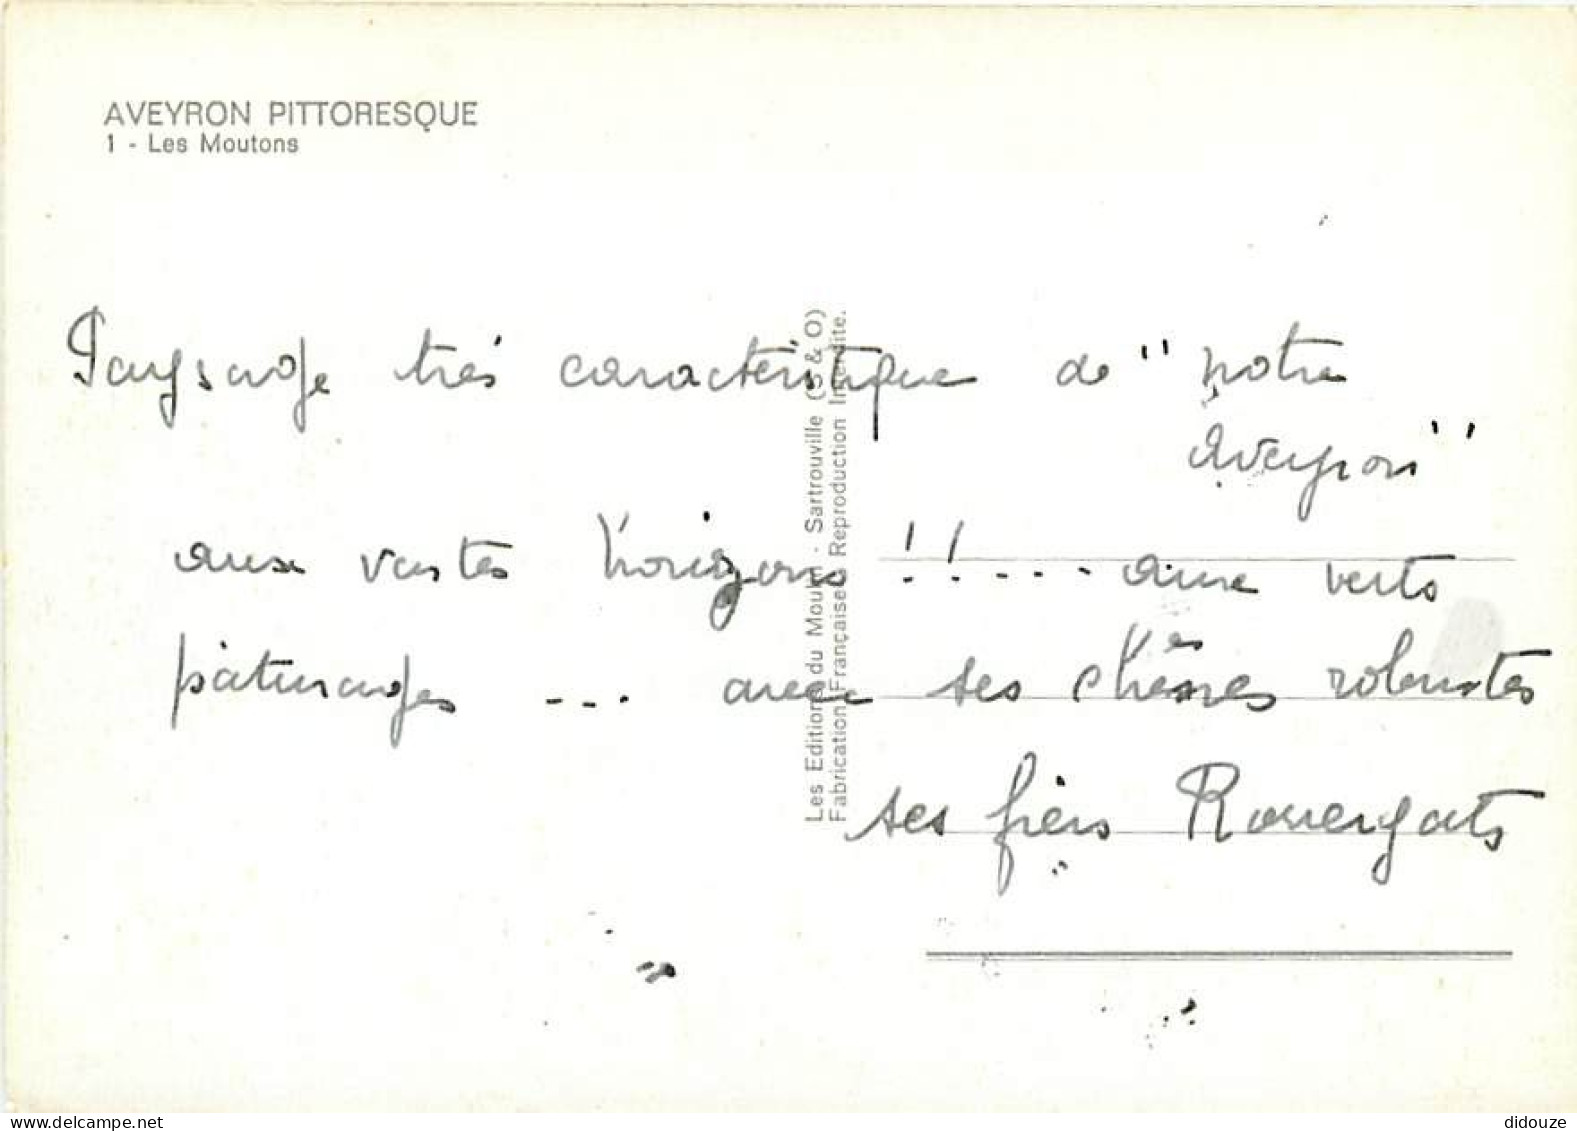 AVEYRON PITTORESQUE
1 - Les Moutons
Paysage très caractéristique de "notre
Aveyron"
aux vastes horizons !!.... aux verts
pâturages ... avec ses chênes robustes
ses fiers Rouergats
Les Editions du Moulin - Sartrouville (S & O)
Fabrication Française Reproduction Interdite.
www.delcampe.net
didouze